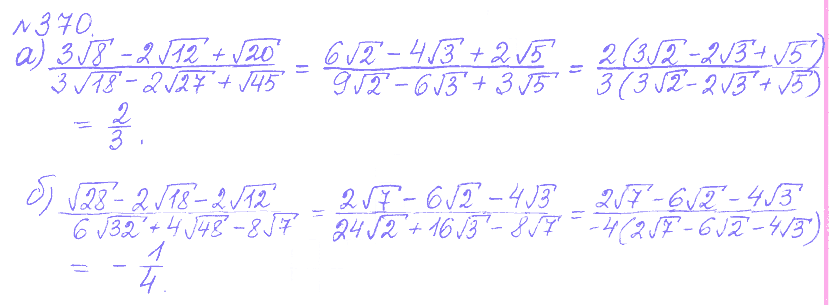 №370.
а) (3√8 - 2√12 + √20)/(3√18 - 2√27 + √45) = (6√2 - 4√3 + 2√5)/(9√2 - 6√3 + 3√5) = 2(3√2 - 2√3 + √5)/3(3√2 - 2√3 + √5)
= 2/3.
б) (√28 - 2√18 - 2√12)/(6√32 + 4√48 - 8√7) = (2√7 - 6√2 - 4√3)/(24√2 + 16√3 - 8√7) = (2√7 - 6√2 - 4√3)/-4(2√7 - 6√2 - 4√3)
= - 1/4.